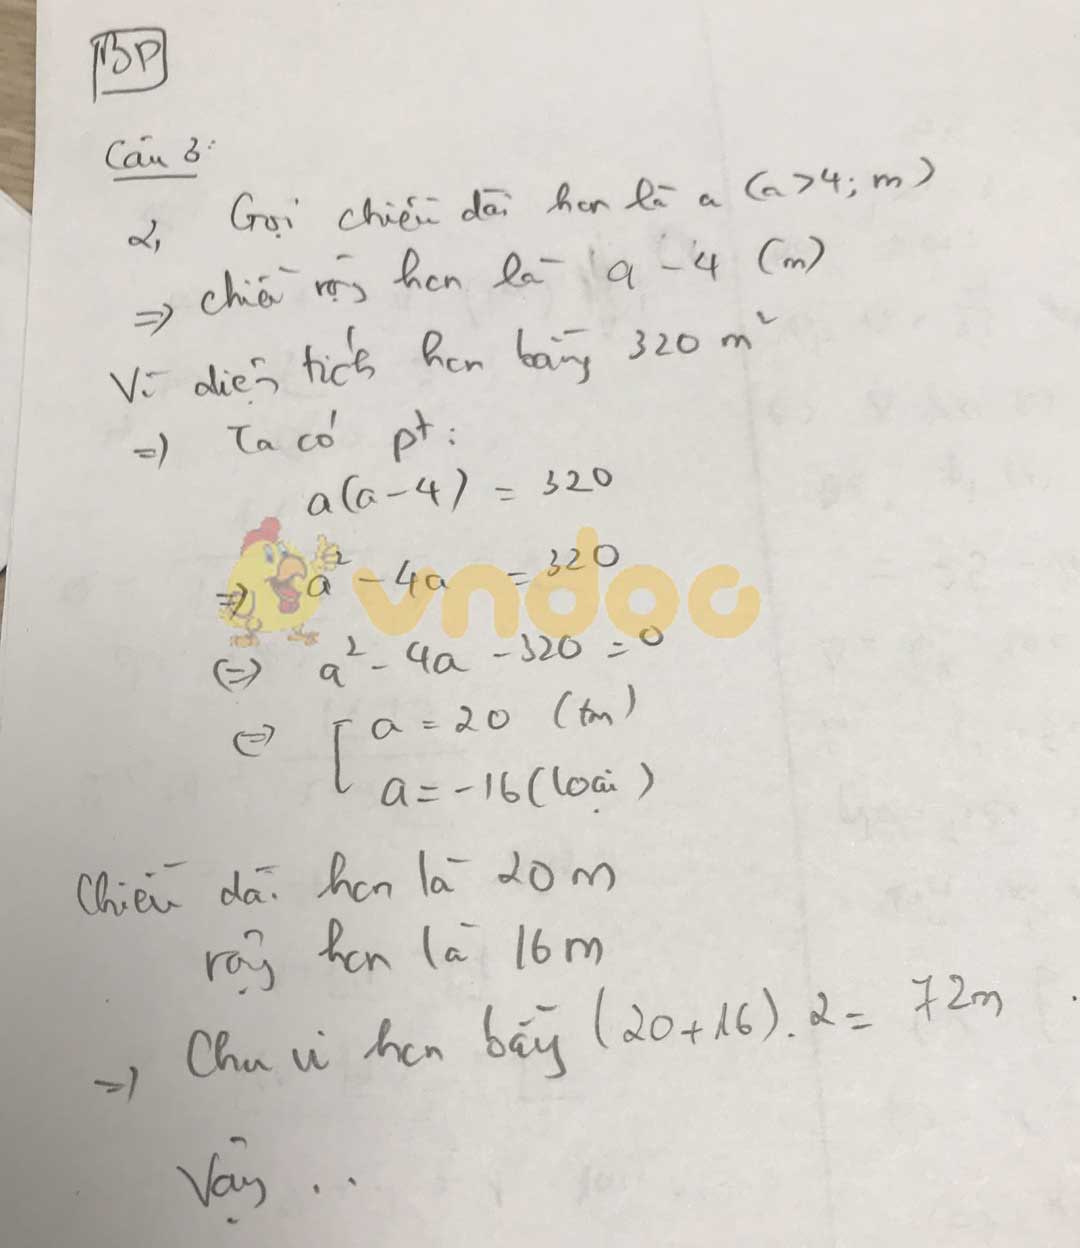 BP
Câu 3:
2, Gọi chiều dài hcn là a (a>4; m)
=> chiều rộng hcn là a - 4 (m)
Vì diện tích hcn bằng 320 m²
=> Ta có pt:
a(a-4) = 320
=> a² - 4a = 320
<=> a² - 4a - 320 = 0
<=> [ a = 20 (tm)
a = -16 (loại)
Chiều dài hcn là 20 m
rộng hcn là 16 m
=> Chu vi hcn bằng (20+16).2 = 72m
Vậy ...
vndoc